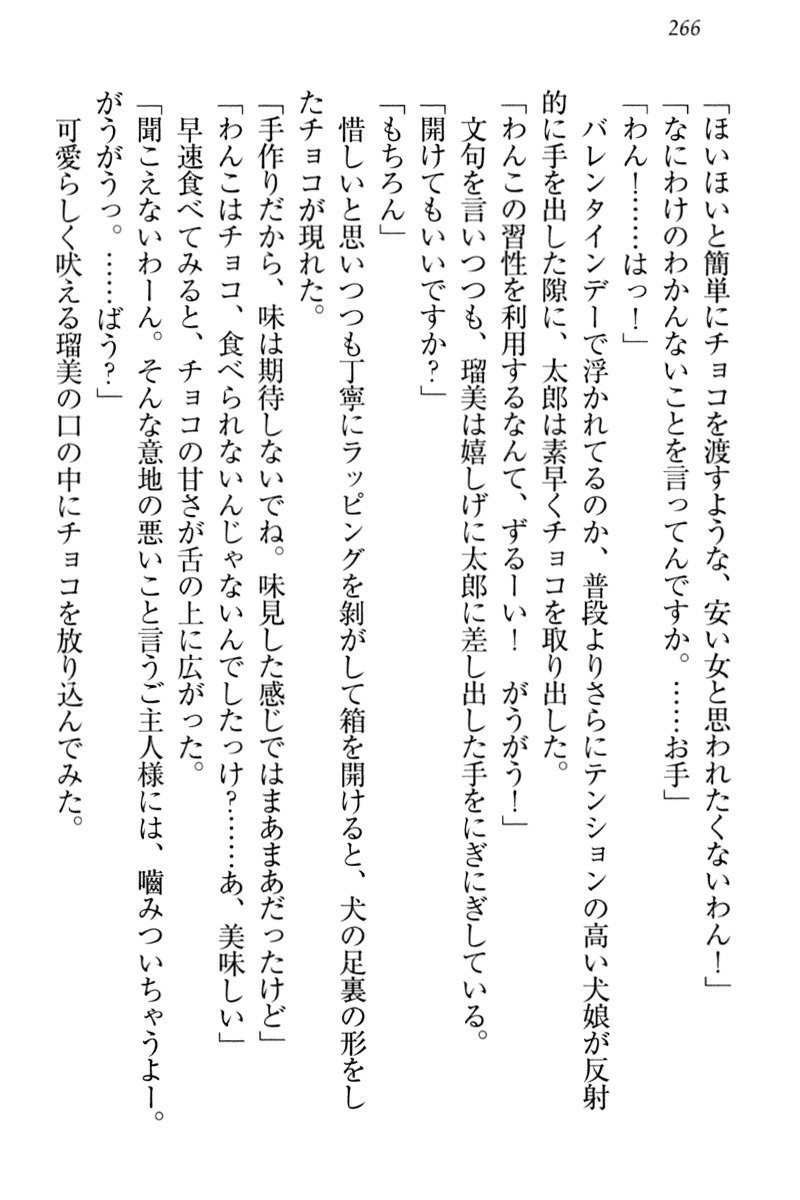 266
「ほいほいと簡単にチョコを渡すような、安い女と思われたくないわん！」
「なにわけのわかんないことを言ってんですか。……お手」
「わん！……はっ！」
　バレンタインデーで浮かれてるのか、普段よりさらにテンションの高い犬娘が反射
的に手を出した隙に、太郎は素早くチョコを取り出した。
「わんこの習性を利用するなんて、ずるーい！　がうがう！」
　文句を言いつつも、瑠美は嬉しげに太郎に差し出した手をにぎにぎしている。
「開けてもいいですか？」
「もちろん」
　惜しいと思いつつも丁寧にラッピングを剝がして箱を開けると、犬の足裏の形をし
たチョコが現れた。
「手作りだから、味は期待しないでね。味見した感じではまあまあだったけど」
「わんこはチョコ、食べられないんじゃないんでしたっけ？……あ、美味しい」
　早速食べてみると、チョコの甘さが舌の上に広がった。
「聞こえないわーん。そんな意地の悪いこと言うご主人様には、嚙みついちゃうよー。
がうがうっ。……ばう？」
　可愛らしく吠える瑠美の口の中にチョコを放り込んでみた。